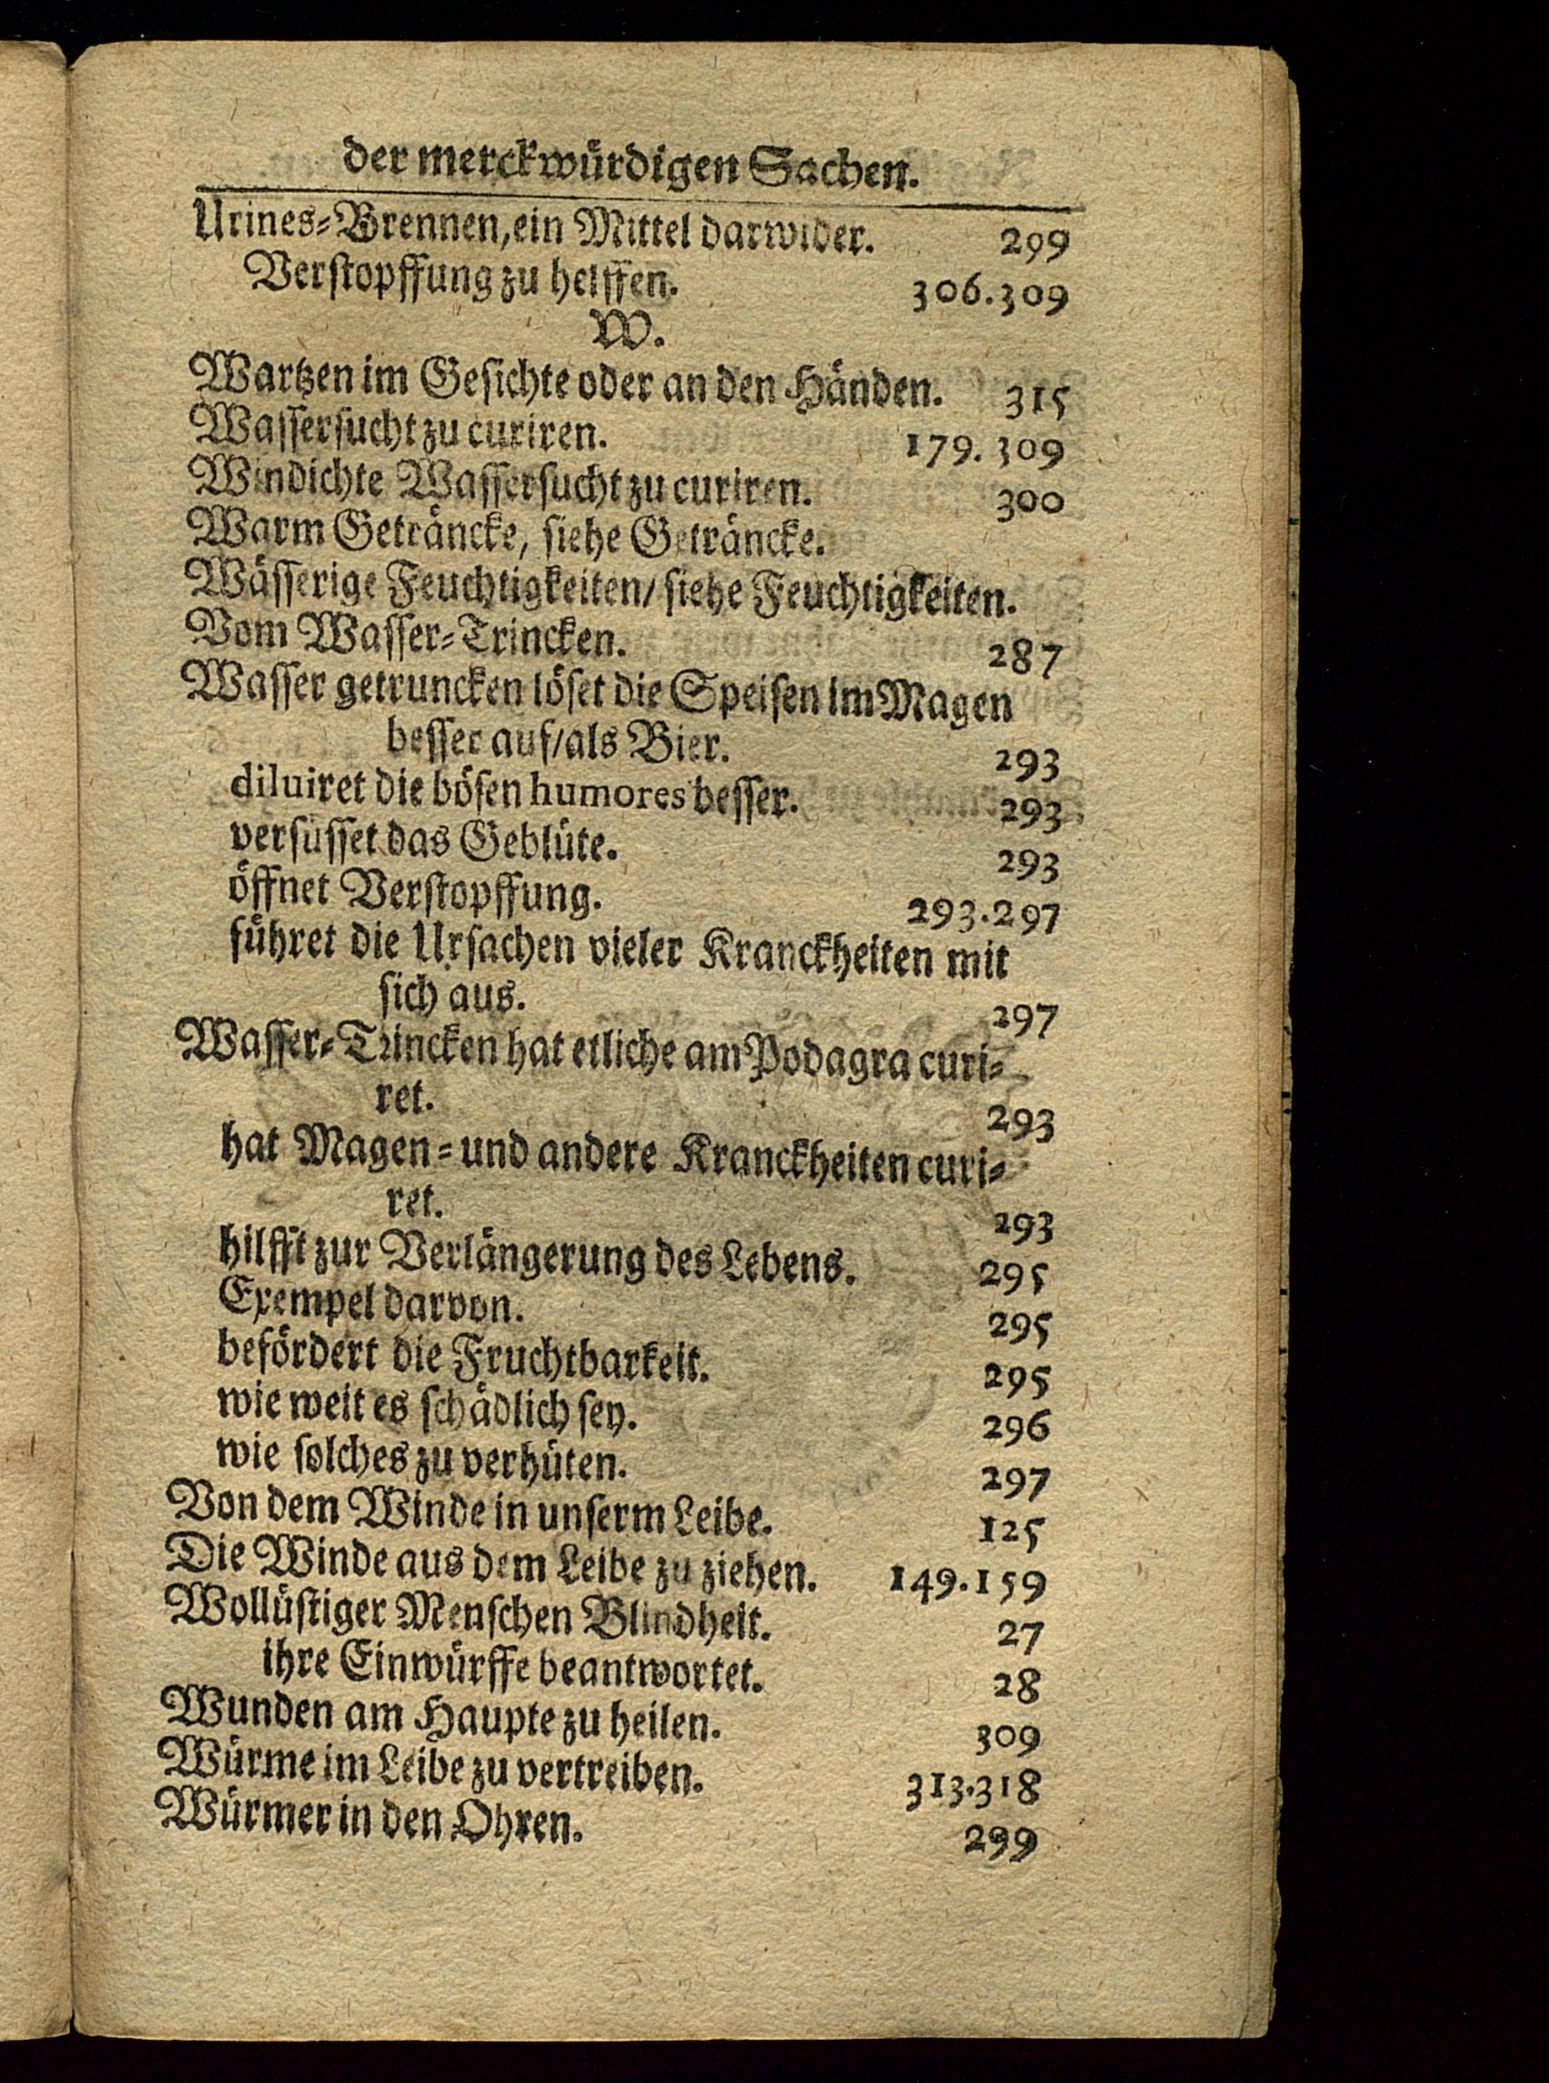 der merckwürdigen Sachen.
Urines-Brennen, ein Mittel darwider. 299
Verstopffung zu helffen. 306.309
W.
Wartzen im Gesichte oder an den Händen. 315
Wassersucht zu curiren. 179. 309
Windichte Wassersucht zu curiren. 300
Warm Geträncke, siehe Geträncke.
Wässerige Feuchtigkeiten/ siehe Feuchtigkeiten.
Vom Wasser-Trincken. 287
Wasser getruncken löset die Speisen im Magen
besser auf/als Bier. 293
diluiret die bösen humores besser. 293
versüsset das Geblüte. 293
öffnet Verstopffung. 293.297
führet die Ursachen vieler Kranckheiten mit
sich aus. 297
Wasser-Trincken hat etliche am Podagra curi-
ret. 293
hat Magen- und andere Kranckheiten curi-
ret. 293
hilfft zur Verlängerung des Lebens. 295
Exempel darvon. 295
befördert die Fruchtbarkeit. 295
wie weit es schädlich sey. 296
wie solches zu verhüten. 297
Von dem Winde in unserm Leibe. 125
Die Winde aus dem Leibe zu ziehen. 149.159
Wollüstiger Menschen Blindheit. 27
ihre Einwürffe beantwortet. 28
Wunden am Haupte zu heilen. 309
Würme im Leibe zu vertreiben. 313.318
Würmer in den Ohren. 299